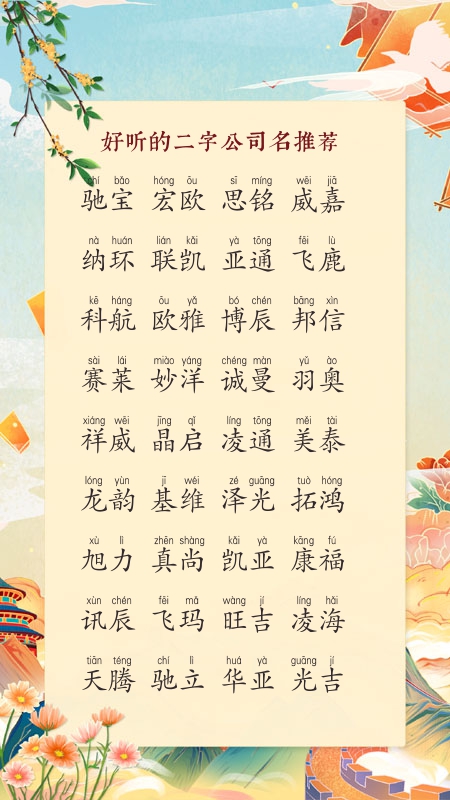 好听的二字公司名推荐
chí bǎo hóng ōu sī míng wēi jiā
驰宝 宏欧 思铭 威嘉
nà huán lián kǎi yà tōng fēi lù
纳环 联凯 亚通 飞鹿
kē háng ōu yǎ bó chén bāng xìn
科航 欧雅 博辰 邦信
sài lái miào yáng chéng màn yǔ ào
赛莱 妙洋 诚曼 羽奥
xiáng wēi jīng qǐ líng tōng měi tài
祥威 晶启 凌通 美泰
lóng yùn jī wéi zé guāng tuò hóng
龙韵 基维 泽光 拓鸿
xù lì zhēn shàng kǎi yà kāng fú
旭力 真尚 凯亚 康福
xùn chén fēi mǎ wàng jí líng hǎi
讯辰 飞玛 旺吉 凌海
tiān téng chí lì huá yà guāng jí
天腾 驰立 华亚 光吉